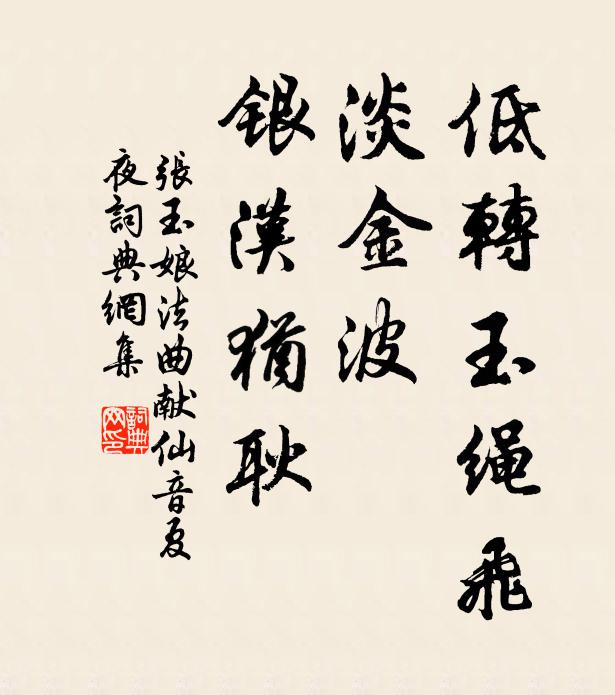 低轉玉绳飛
淡金波
銀漢猶耿
張玉娘法曲献仙音夏
夜詞典網集
詞典網印